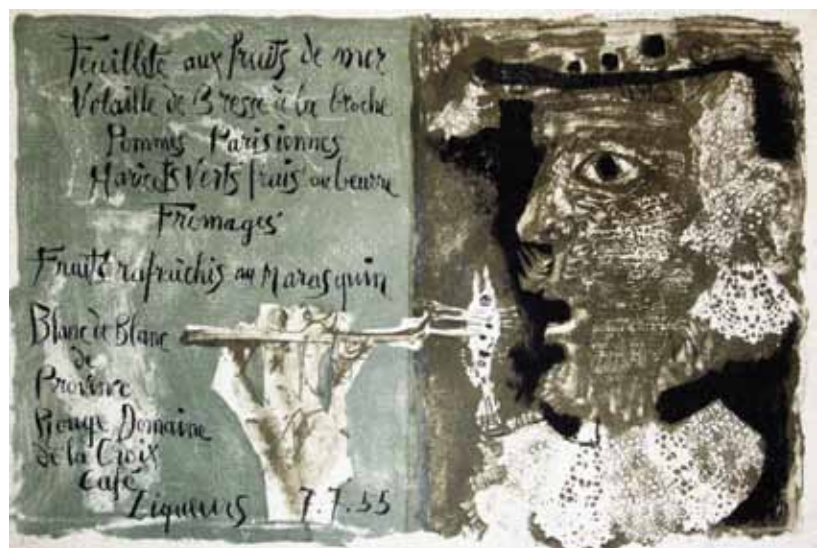 Feuillete aux fruits de mer
Volaille de Bresse à la broche
Pommes Parisiennes
Haricots Verts frais au beurre
Fromages
Fruits rafraichis au Marasquin
Blanc de Blanc
de
Provence
Rouge Domaine
de la Croix
Café
Liqueurs 7.7.55